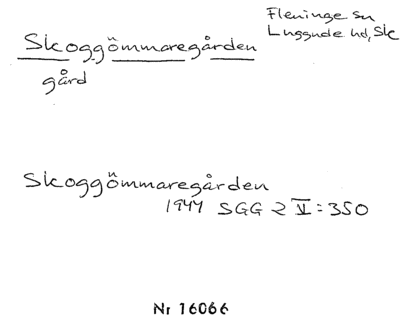 Fleninge sn
Luggude hd, Sk
Skoggömmaregården
gård
Skoggömmaregården
1944 SGG 2 V:350
Nr 16066